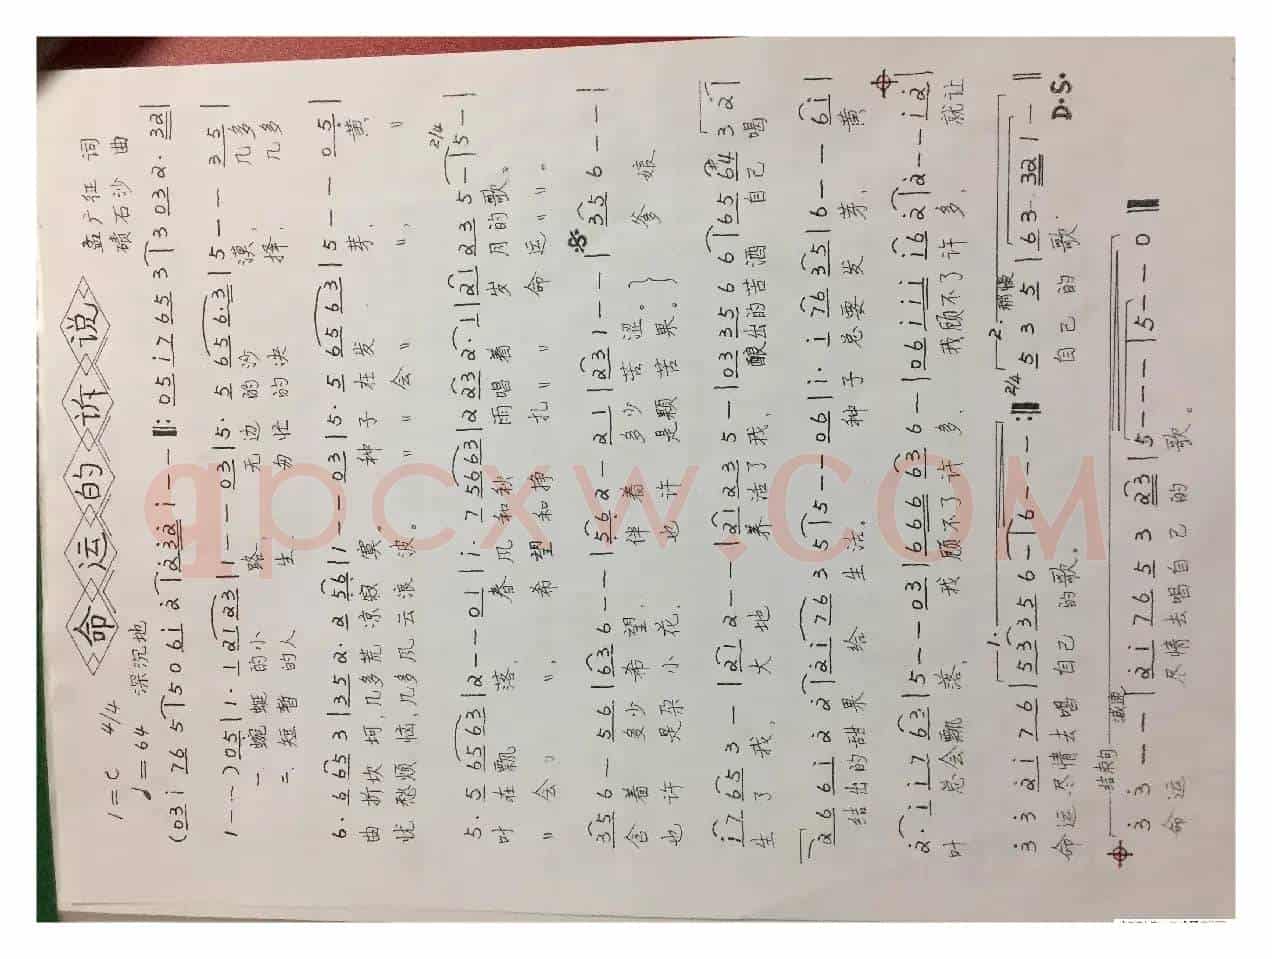 命运的诉说
1=C 4/4
♩=64 深沉地
孟广征 词
硕石沙 曲
(03i 76 5 | 5 06i 2 | 2322 i — — ‖: 05 i7 65 3 | 3 03 2· 32 |
1 — — ) 05 | 1· 1 2123 | 1 — — 03 | 5· 5 656·3 | 5 — — 35 |
一、蜿蜒的小路, 无边的沙漠, 几多
二、短暂的人生, 匆忙的决择, 几多
6· 665 3 | 352· 2 56 | 1 — — 03 | 5· 5 65 63 | 5 — — 05 |
曲折坎坷,几多荒凉寂寞。 种子在发芽, 黄
忧愁烦恼,几多风云浪波。 〃 〃 会 〃 〃, 〃
5· 5 65 63 | 2 — — 01 | i· 7 5663 | 2 223 2· 1 | 21 235 — | 5 — |
叶在飘落, 春风和秋雨唱着岁月的歌。
〃 〃 会 〃 〃, 希望和挣扎 〃 〃 命运 〃 〃。
356 — 56 | 63 6 — — | 562 — 21 | 23 1 — — | 35 6 — — |
含着多少希望, 伴着多少苦涩。} 爹娘
也许是朵小花, 也许是颗苦果。
i7 65 3 — | 21 2 — — | 21 235 — | 0335 6 6 | 65 64 3 2 |
生了我, 大地养活了我, 酿出的苦酒自己喝
266i 2 2 | 2i 763 5 | 5 — — 06 | i· i 76 35 | 6 — — 6i |
结出的甜果给生活。 种子总要发芽, 黄
2· i i7 63 | 5 — — 03 | 666 63 6 — | 06 iii i62 | 2 — — i2 |
叶总会飘落, 我顾不了许多, 我顾不了许多, 就让
3 3 2i 76 | 53335 6 — | 6 — — — :‖ 2/4 5 3 5 | 63· 32 1 — ‖
1. 2. 稍慢
命运尽情去喝自己的歌。 自己的歌·
D.S.
结束句 减速
3 3 — — | 2i 76 5 3 23 | 5 — — — | 5 — — 0 ‖
命运 尽情去喝自己的歌。
qpcxw.com